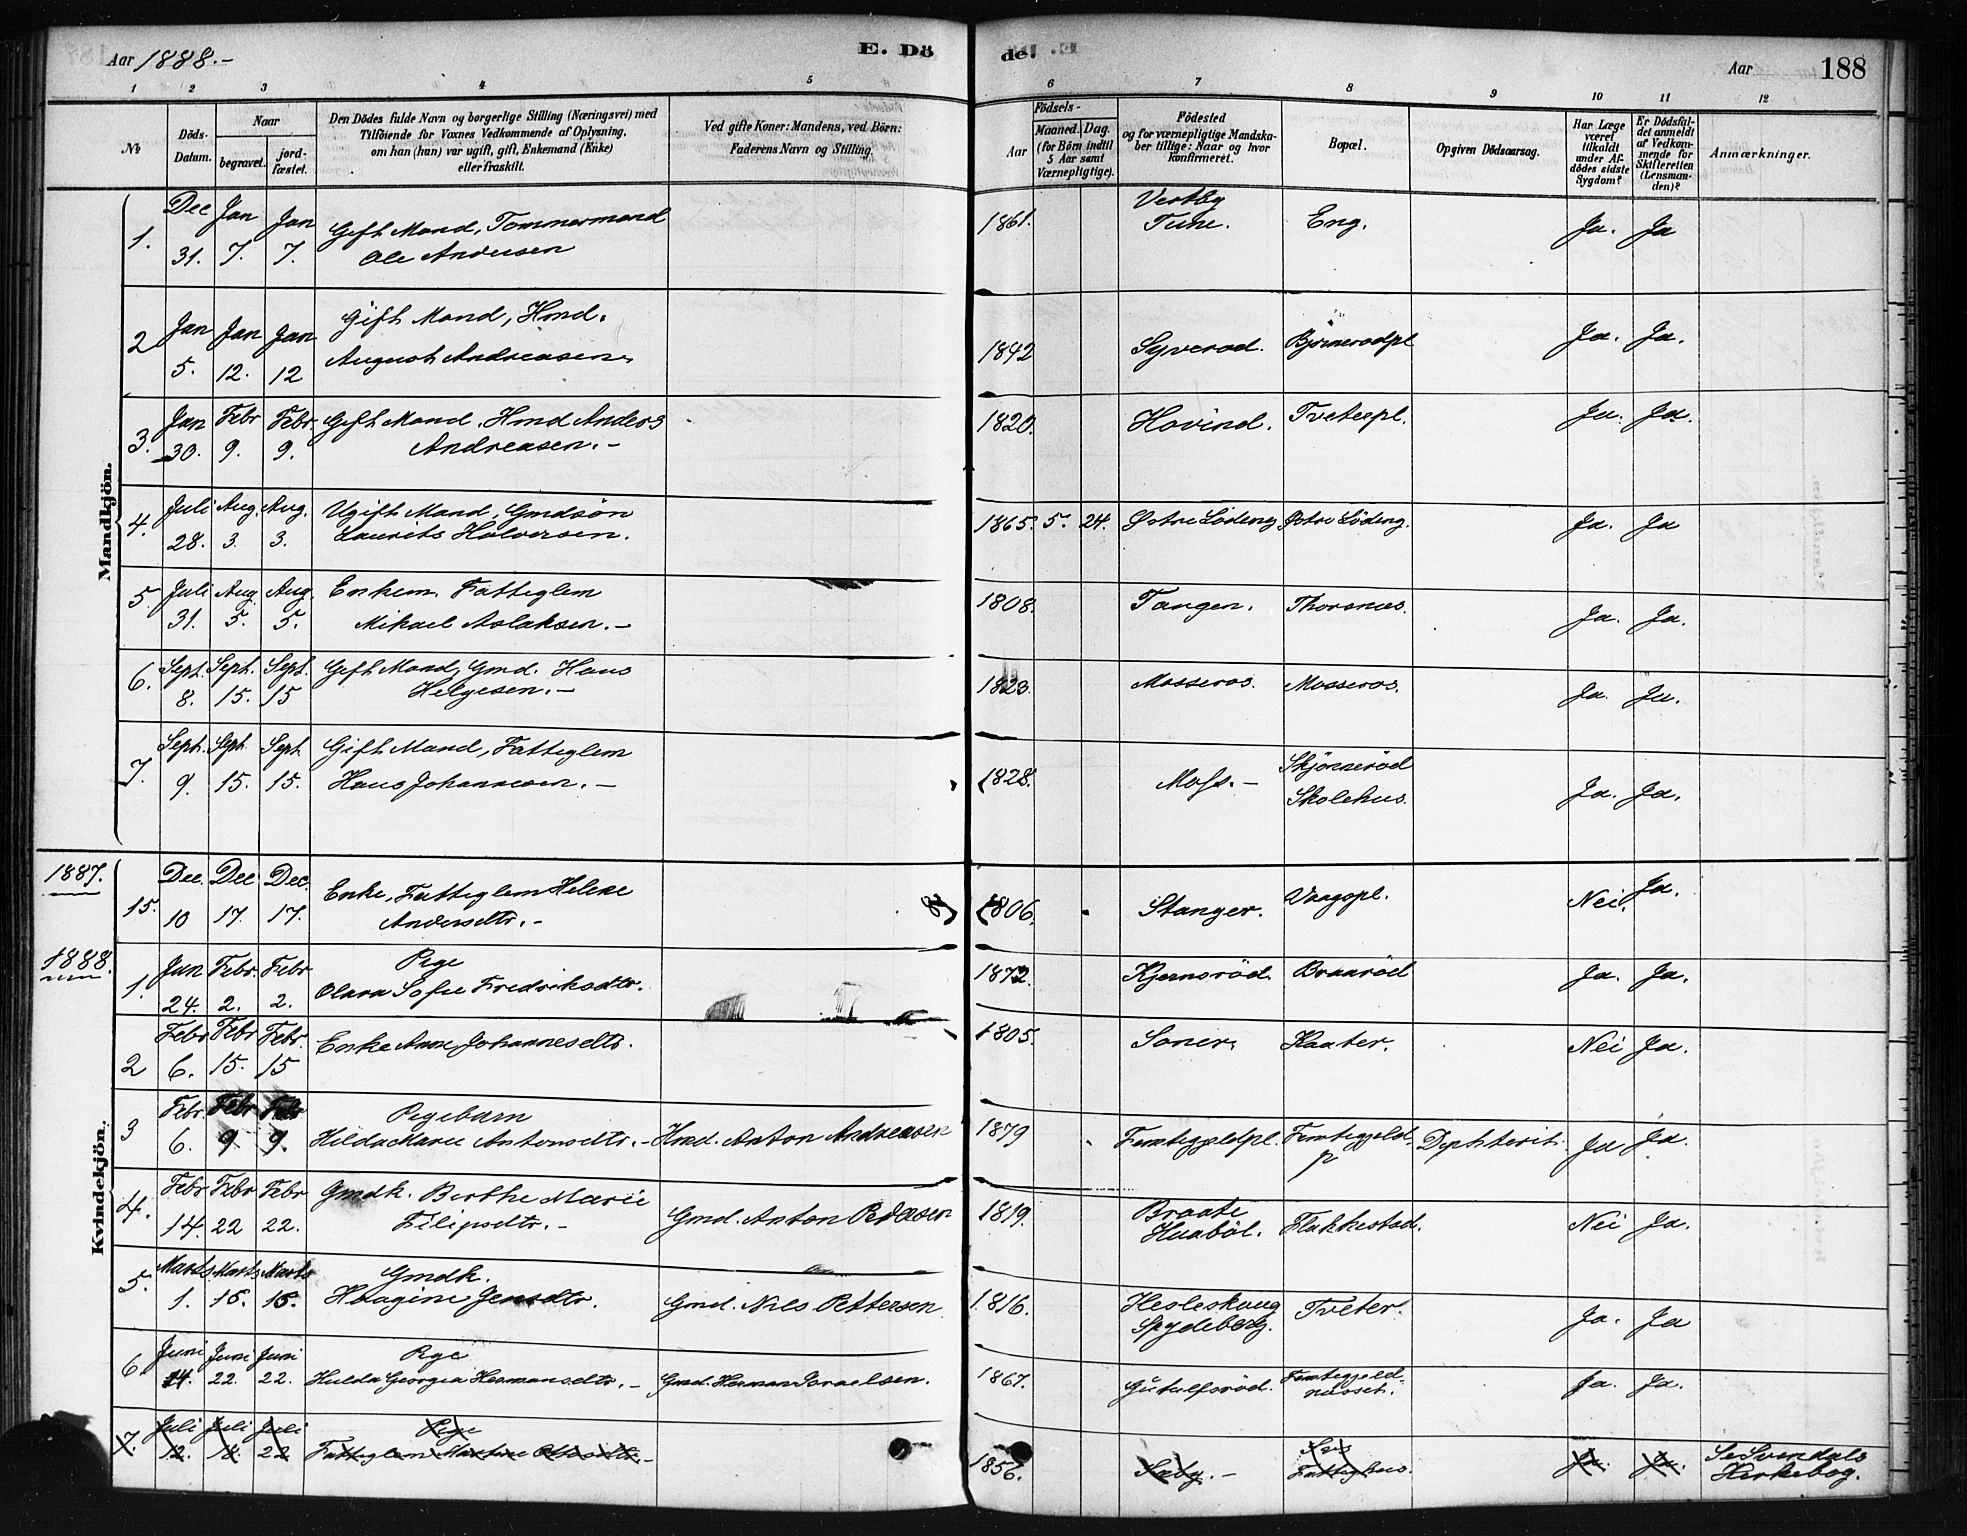 Aar 1888.-
E. Dö
de.
Aar
188
1 2 3 4 5 6 7 8 9 10 11 12
No
Döds-
Datum.
Naar
begravet.
jord-
fæstet.
Den Dödes fulde Navn og borgerlige Stilling (Næringsvei) med
Tilföiende for Voxnes Vedkommende af Oplysning,
om han (hun) var ugift, gift, Enkemand (Enke)
eller fraskilt.
Ved gifte Koner: Mandens, ved Börn:
Faderens Navn og Stilling.
Födsels-
Aar
Maaned.
Dag.
(for Börn indtil
5 Aar samt
Værnepligtige).
Födested
og for værnepligtige Mandska-
ber tillige: Naar og hvor
konfirmeret.
Bopæl.
Opgiven Dödsaarsag.
Har Læge
været
tilkaldt
under Af-
dödes sidste
Sygdom?
Er Dödsfal-
det anmeldt
af Vedkom-
mende for
Skifteretten
(Lensman-
den)?
Anmærkninger.
Mandkjön.
1. Dec 31. Jan 7. Jan 7. Gift Mand, Tommermand
Ole Andersen
1861. Vestby
Tune. Eng. Ja. Ja
2 Jan 5. Jan 12. Jan 12 Gift Mand, Hmd.
August Andreasen.
1842 Syverod. Bjørnerodpl Ja. Ja.
3. Jan 30. Febr 9. Febr. 9. Gift Mand. Hmd Anders
Andreasen.-
1820. Hovind. Tveterpl. Ja. Ja.
4. Juli 28. Aug. 3. Aug. 3. Ugift Mand, Gmdsön
Laurits Halvorsen.
1865. 5. 24. Østre Löding Østre Löding. Ja. Ja
5 Juli 31. Aug. 5. Aug. 5. Enkem. Fattiglem
Mikael Aslaksen.-
1808. Tangen. Thorsnæs. Ja. Ja.
6. Sept. 8. Sept. 15. Sept. 15 Gift Mand, Gmd. Hans
Helgesen.-
1823. Mosseros. Mosseros. Ja. Ja.
7. Sept. 9. Sept. 15. Sept 15. Gift Mand, Fattiglem
Hans Johannesen.-
1828. Moss.- Skjönneröd
Skolehus. Ja. Ja.
Kvindekjön.
1887.
15. Dec. 10 Dec 17. Dec. 17. Enke, Fattiglem Helene
Andersdtr.-
1806. Stanger. Vaagspl. Nei. Ja.
1888.
1. Jan 24. Febr. 2. Febr 2. Pige
Clara Sofie Fredriksdtr.
1872. Kjernsröd. Braaröd Ja. Ja.
2 Febr 6. Febr 15. Febr. 15 Enke Anne Johannesdtr.
1805. Soner. Kaater. Nei Ja.
3 Febr. 6. Febr 9 Febr 9. Pigebarn
Hilda Marie Antonsdtr.- Hmd. Anton Andreasen
1879 Femtegjeldpl. Femtegjeld-
p Dyphterit. Ja Ja.
4. Febr 14. Febr 22 Febr 22. Gmdk. Berthe Marie
Filipsdtr.- Gmd. Anton Pedersen
1819. Braate
Haaböl. Flakkestad. Nei Ja.
5. Marts 1. Marts 15. Marts 15. Gmdk.
Haagine Jensdtr. Gmd. Nils Pettersen
1816. Hesleskaug
Spydeberg. Tveter. Ja. Ja
6 Juni 14. Juni 22. Juni 22. Pige
Hulda Georgia Hermansdtr.- Gmd. Herman Israelsen.
1867. Gutulfsröd. Femtegjeld-
nesset. Ja. Ja.
7. Juli 12. Juli 18. Juli 22 Pige
Fattiglem Martine Ottosdtr.-
1856. Sæby.- Fattighus. Ja. Ja. Se Svendals
Kirkebog.